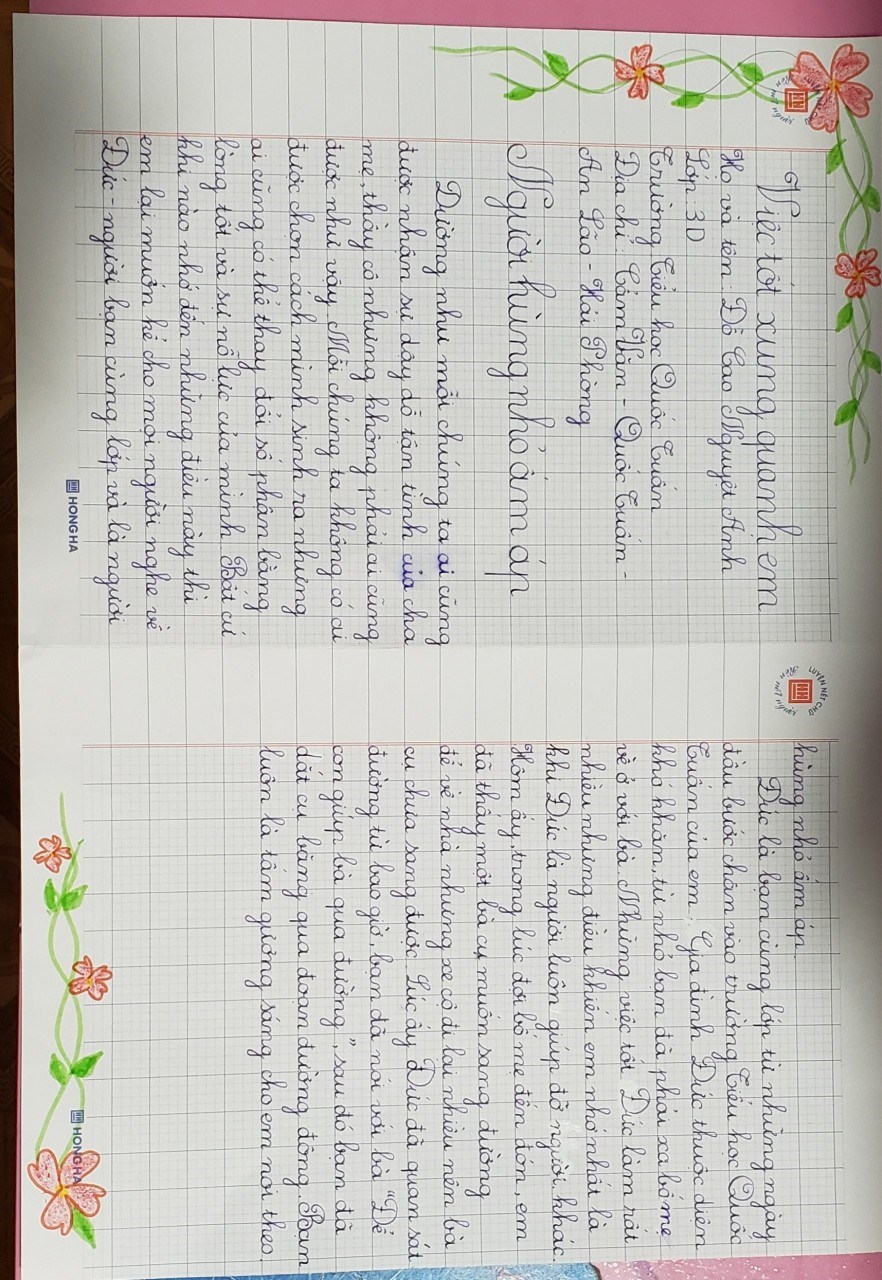 LUYỆN NÉT CHỮ
RÈN NẾT NGƯỜI
Việc tốt xung quanh em
Họ và tên: Đỗ Cao Nguyệt Anh
Lớp: 3D
Trường Tiểu học Quốc Tuấn
Địa chỉ: Cẩm Văn - Quốc Tuấn -
An Lão - Hải Phòng
Người hùng nhỏ ấm áp
Dường như mỗi chúng ta ai cũng
được nhận sự dạy dỗ tận tình của cha
mẹ, thầy cô nhưng không phải ai cũng
được như vậy. Mỗi chúng ta không có ai
được chọn cách mình sinh ra nhưng
ai cũng có thể thay đổi số phận bằng
lòng tốt và sự nỗ lực của mình. Bất cứ
khi nào nhớ đến những điều này thì
em lại muốn kể cho mọi người nghe về
Đức - người bạn cùng lớp và là người
HONG HA
LUYỆN NÉT CHỮ
RÈN NẾT NGƯỜI
hùng nhỏ ấm áp.
Đức là bạn cùng lớp từ những ngày
đầu bước chân vào trường Tiểu học Quốc
Tuấn của em. Gia đình Đức thuộc diện
khó khăn, từ nhỏ bạn đã phải xa bố mẹ
về ở với bà. Những việc tốt Đức làm rất
nhiều nhưng điều khiến em nhớ nhất là
khi Đức là người luôn giúp đỡ người khác.
Hôm ấy, trong lúc đợi bố mẹ đến đón, em
đã thấy một bà cụ muốn sang đường
để về nhà nhưng xe cộ đi lại nhiều nên bà
cụ chưa sang được. Lúc ấy Đức đã quan sát
đường từ bao giờ, bạn đã nói với bà "Để
con giúp bà qua đường", sau đó bạn đã
dắt cụ băng qua đoạn đường đông. Bạn
luôn là tấm gương sáng cho em noi theo.
HONG HA